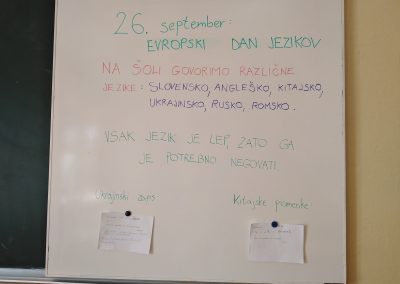 26. september:
EVROPSKI DAN JEZIKOV
NA ŠOLI GOVORIMO RAZLIČNE
JEZIKE: SLOVENSKO, ANGLEŠKO, KITAJSKO,
UKRAJINSKO, RUSKO, ROMSKO.
VSAK JEZIK JE LEP, ZATO GA
JE POTREBNO NEGOVATI.
Ukrajinski zapis
Kitajske pismenke